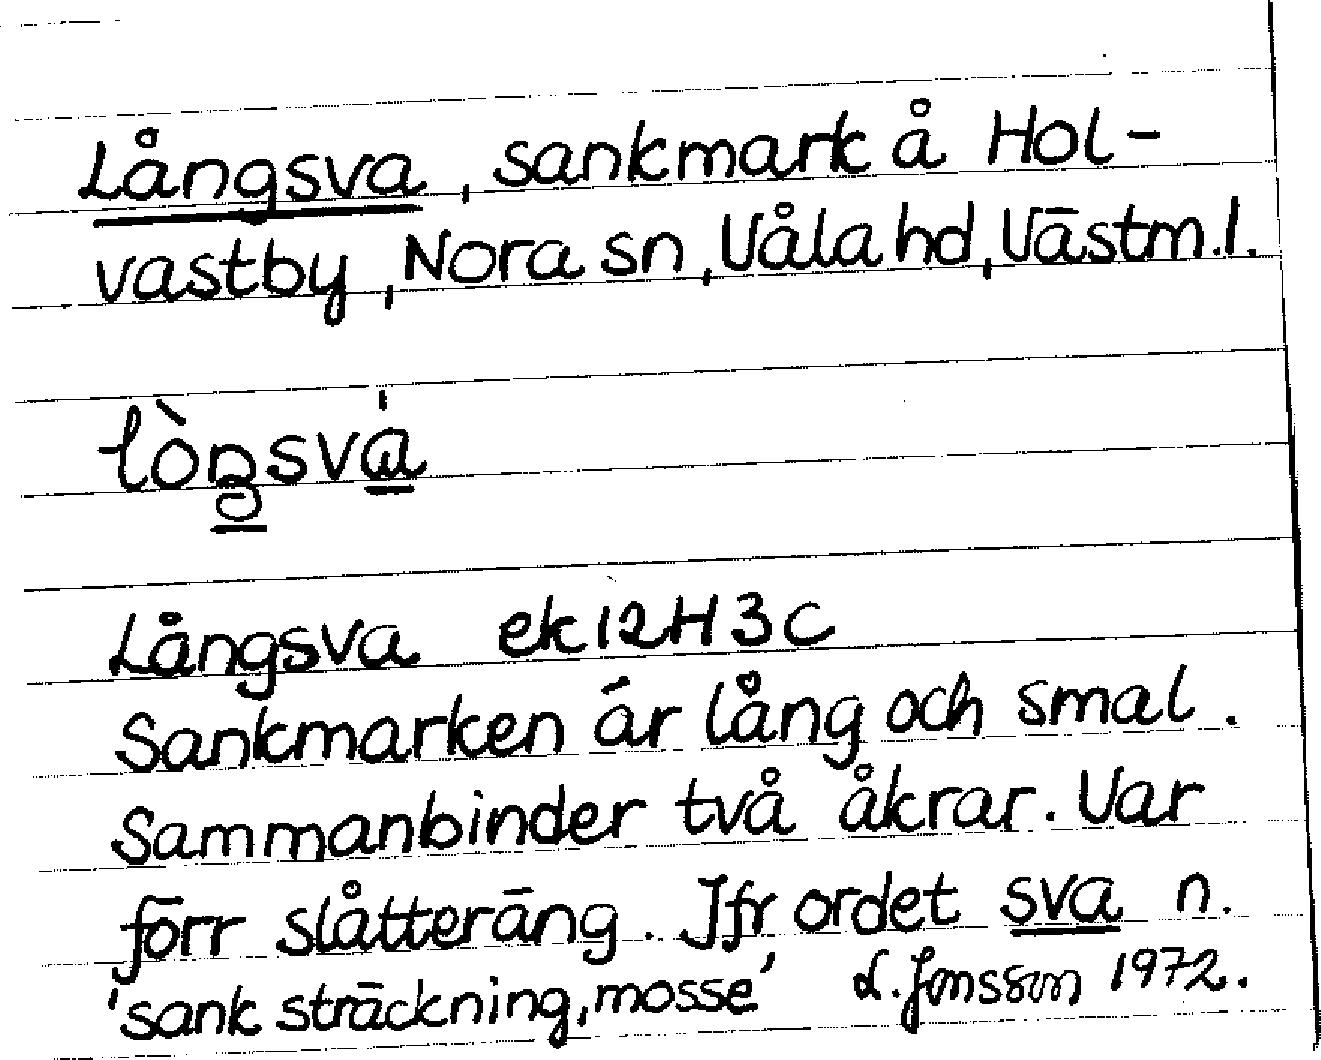 Långsva, sankmark å Hol-
vastby, Nora sn, Våla hd, Västm.l.
lòngsvá
Långsva ek 12H3c
Sankmarken är lång och smal.
Sammanbinder två åkrar. Var
förr slåtteräng. Jfr ordet sva n.
'sank sträckning, mosse' L. Jonsson 1972.